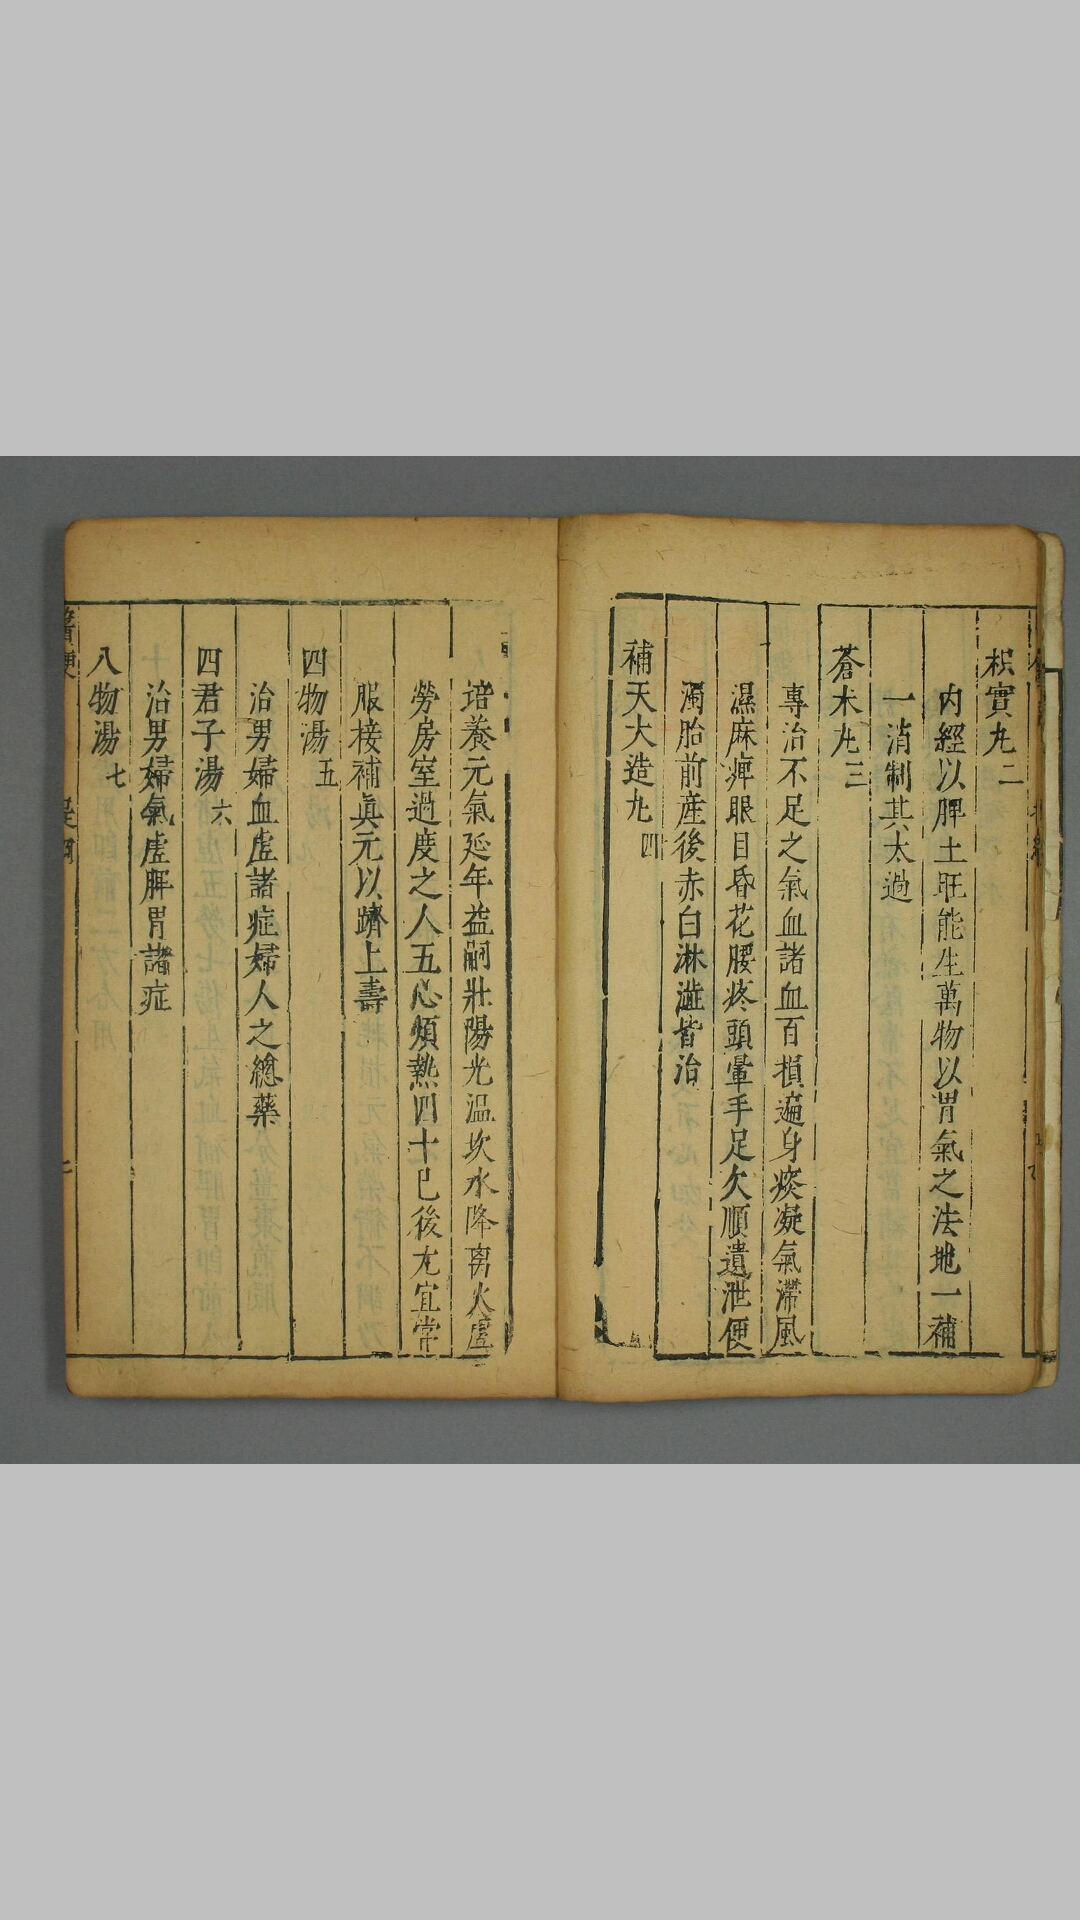 枳實丸二
内經以脾土旺能生萬物以胃氣之法地一補
一消制其太過
蒼术丸三
專治不足之氣血諸血百損遍身痰凝氣滯風
濕麻痺眼目昏花腰疼頭暈手足欠順遺泄便
濁胎前產後赤白淋澁皆治
補天大造丸四
培養元氣延年益嗣壯陽光温坎水降离火虛
勞房室過度之人五心煩熱四十已後尤宜常
服接補眞元以躋上壽
四物湯五
治男婦血虛諸症婦人之總藥
四君子湯六
治男婦氣虛脾胃諸症
八物湯七